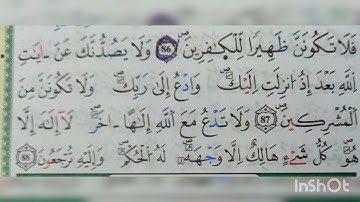 فَلَا تَكُونَنَّ ظَهِيرًا لِّلْكٰفِرِينَ 86 وَلَا يَصُدُّنَّكَ عَنْ ءَايَٰتِ
اللَّهِ بَعْدَ إِذْ أُنزِلَتْ إِلَيْكَ وَادْعُ إِلَىٰ رَبِّكَ وَلَا تَكُونَنَّ مِنَ
الْمُشْرِكِينَ 87 وَلَا تَدْعُ مَعَ اللَّهِ إِلَٰهًا ءَاخَرَ لَا إِلَٰهَ إِلَّا
هُوَ كُلُّ شَيْءٍ هَالِكٌ إِلَّا وَجْهَهُ لَهُ الْحُكْمُ وَإِلَيْهِ تُرْجَعُونَ 88
InShOt